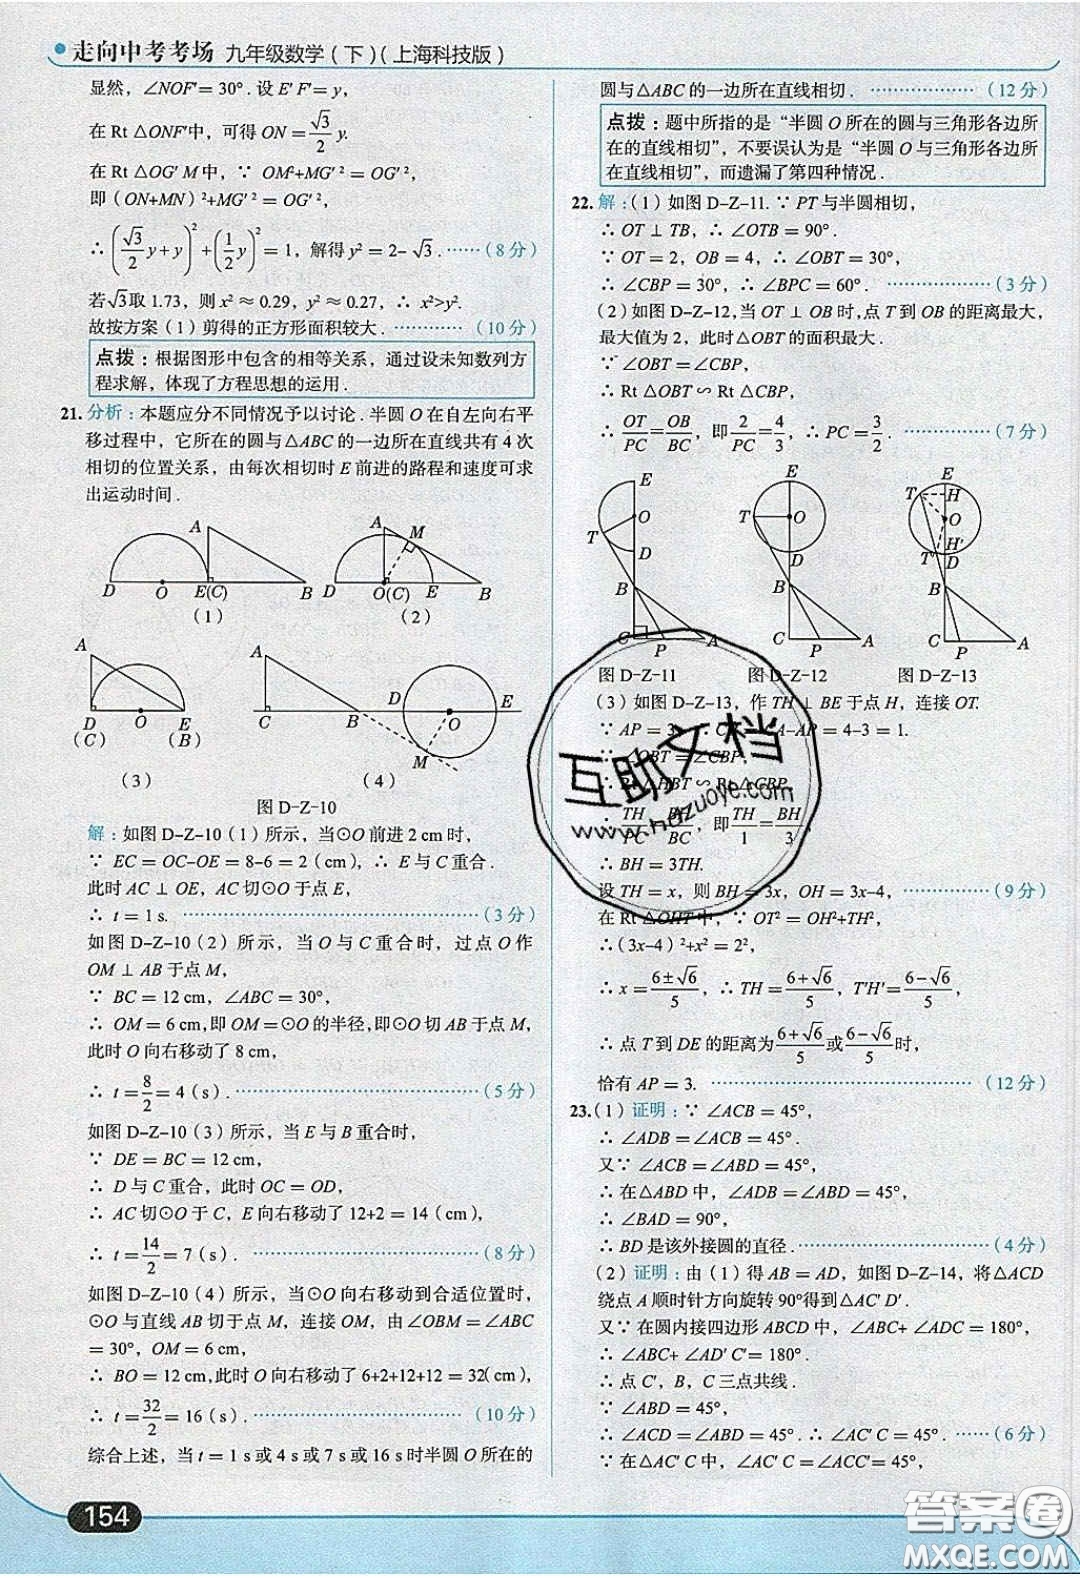 走向中考考场 九年级数学(下)(上海科技版)
显然,∠NOF′=30°.设E′F′=y,
在Rt△ONF′中,可得ON=√3/2 y.
在Rt△OG′M中,∵ OM²+MG′²=OG′²,
即(ON+MN)²+MG′²=OG′²,
∴(√3/2 y+y)²+(1/2 y)²=1,解得y²=2-√3.……(8分)
若√3取1.73,则x²≈0.29,y²≈0.27,∴ x²>y².
故按方案(1)剪得的正方形面积较大.…………(10分)
点拨:根据图形中包含的相等关系,通过设未知数列方
程求解,体现了方程思想的运用.
21.分析:本题应分不同情况予以讨论.半圆O在自左向右平
移过程中,它所在的圆与△ABC的一边所在直线共有4次
相切的位置关系,由每次相切时E前进的路程和速度可求
出运动时间.
A
D O E(C) B
(1)
A M
D O(C) E B
(2)
A
D O E
(C) (B)
(3)
A
C B D O E
M
(4)
图D-Z-10
解:如图D-Z-10(1)所示,当⊙O前进2 cm时,
∵ EC=OC-OE=8-6=2(cm),∴ E与C重合.
此时AC⊥OE,AC切⊙O于点E,
∴ t=1 s.……………(3分)
如图D-Z-10(2)所示,当O与C重合时,过点O作
OM⊥AB于点M,
∵ BC=12 cm,∠ABC=30°,
∴ OM=6 cm,即OM=⊙O的半径,即⊙O切AB于点M,
此时O向右移动了8 cm,
∴ t=8/2=4(s).……………(5分)
如图D-Z-10(3)所示,当E与B重合时,
∵ DE=BC=12 cm,
∴ D与C重合,此时OC=OD,
∴ AC切⊙O于C,E向右移动了12+2=14(cm),
∴ t=14/2=7(s).……………(8分)
如图D-Z-10(4)所示,当⊙O向右移动到合适位置时,
⊙O与直线AB切于点M,连接OM,由∠OBM=∠ABC
=30°,OM=6 cm,
∴ BO=12 cm,此时O向右移动了6+2+12+12=32(cm),
∴ t=32/2=16(s).……………(10分)
综合上述,当t=1 s或4 s或7 s或16 s时半圆O所在的
圆与△ABC的一边所在直线相切.……………(12分)
点拨:题中所指的是“半圆O所在的圆与三角形各边所
在的直线相切”,不要误认为是“半圆O与三角形各边所
在直线相切”,而遗漏了第四种情况.
22.解:(1)如图D-Z-11.∵ PT与半圆相切,
∴ OT⊥TB,∴ ∠OTB=90°.
∵ OT=2,OB=4,∴ ∠OBT=30°,
∴ ∠CBP=30°,∴ ∠BPC=60°.……………(3分)
(2)如图D-Z-12,当OT⊥OB时,点T到OB的距离最大,
最大值为2,此时△OBT的面积最大.
∵ ∠OBT=∠CBP,
∴ Rt△OBT∽Rt△CBP,
∴ OT/PC=OB/BC,即2/PC=4/3,∴ PC=3/2.……………(7分)
E
O
T
D
B
C P A
图D-Z-11
E
T O
D
B
C P A
图D-Z-12
E
T H
O
T′ H′
D
B
C P A
图D-Z-13
(3)如图D-Z-13,作TH⊥BE于点H,连接OT.
∵ AP=3 A-AP=4-3=1.
∵ ∠OBT=∠CBP,
∴ Rt△HBT∽Rt△CBP,
∴ TH/PC=BH/BC,即TH/1=BH/3,
∴ BH=3TH.
设TH=x,则BH=3x,OH=3x-4,……………(9分)
在Rt△OHT中,∵ OT²=OH²+TH²,
∴(3x-4)²+x²=2²,
∴ x=(6±√6)/5,∴ TH=(6+√6)/5,T′H′=(6-√6)/5,
∴ 点T到DE的距离为(6+√6)/5或(6-√6)/5时,
恰有AP=3.……………(12分)
23.(1)证明:∵ ∠ACB=45°,
∴ ∠ADB=∠ACB=45°.
又∵ ∠ACB=∠ABD=45°,
∴ 在△ABD中,∠ADB=∠ABD=45°,
∴ ∠BAD=90°,
∴ BD是该外接圆的直径.……………(4分)
(2)证明:由(1)得AB=AD,如图D-Z-14,将△ACD
绕点A顺时针方向旋转90°得到△AC′D′.
又∵ 在圆内接四边形ABCD中,∠ABC+∠ADC=180°,
∴ ∠ABC+∠AD′C′=180°.
∴ 点C′,B,C三点共线.
∵ ∠ABD=45°,
∴ ∠ACD=∠ABD=45°,∴ ∠AC′C=45°.……(6分)
∵ 在△ACC′中,∠ACC′=∠AC′C=45°,
154
互助文档
www.hdzuoye.com
答案圈
MXQE.COM